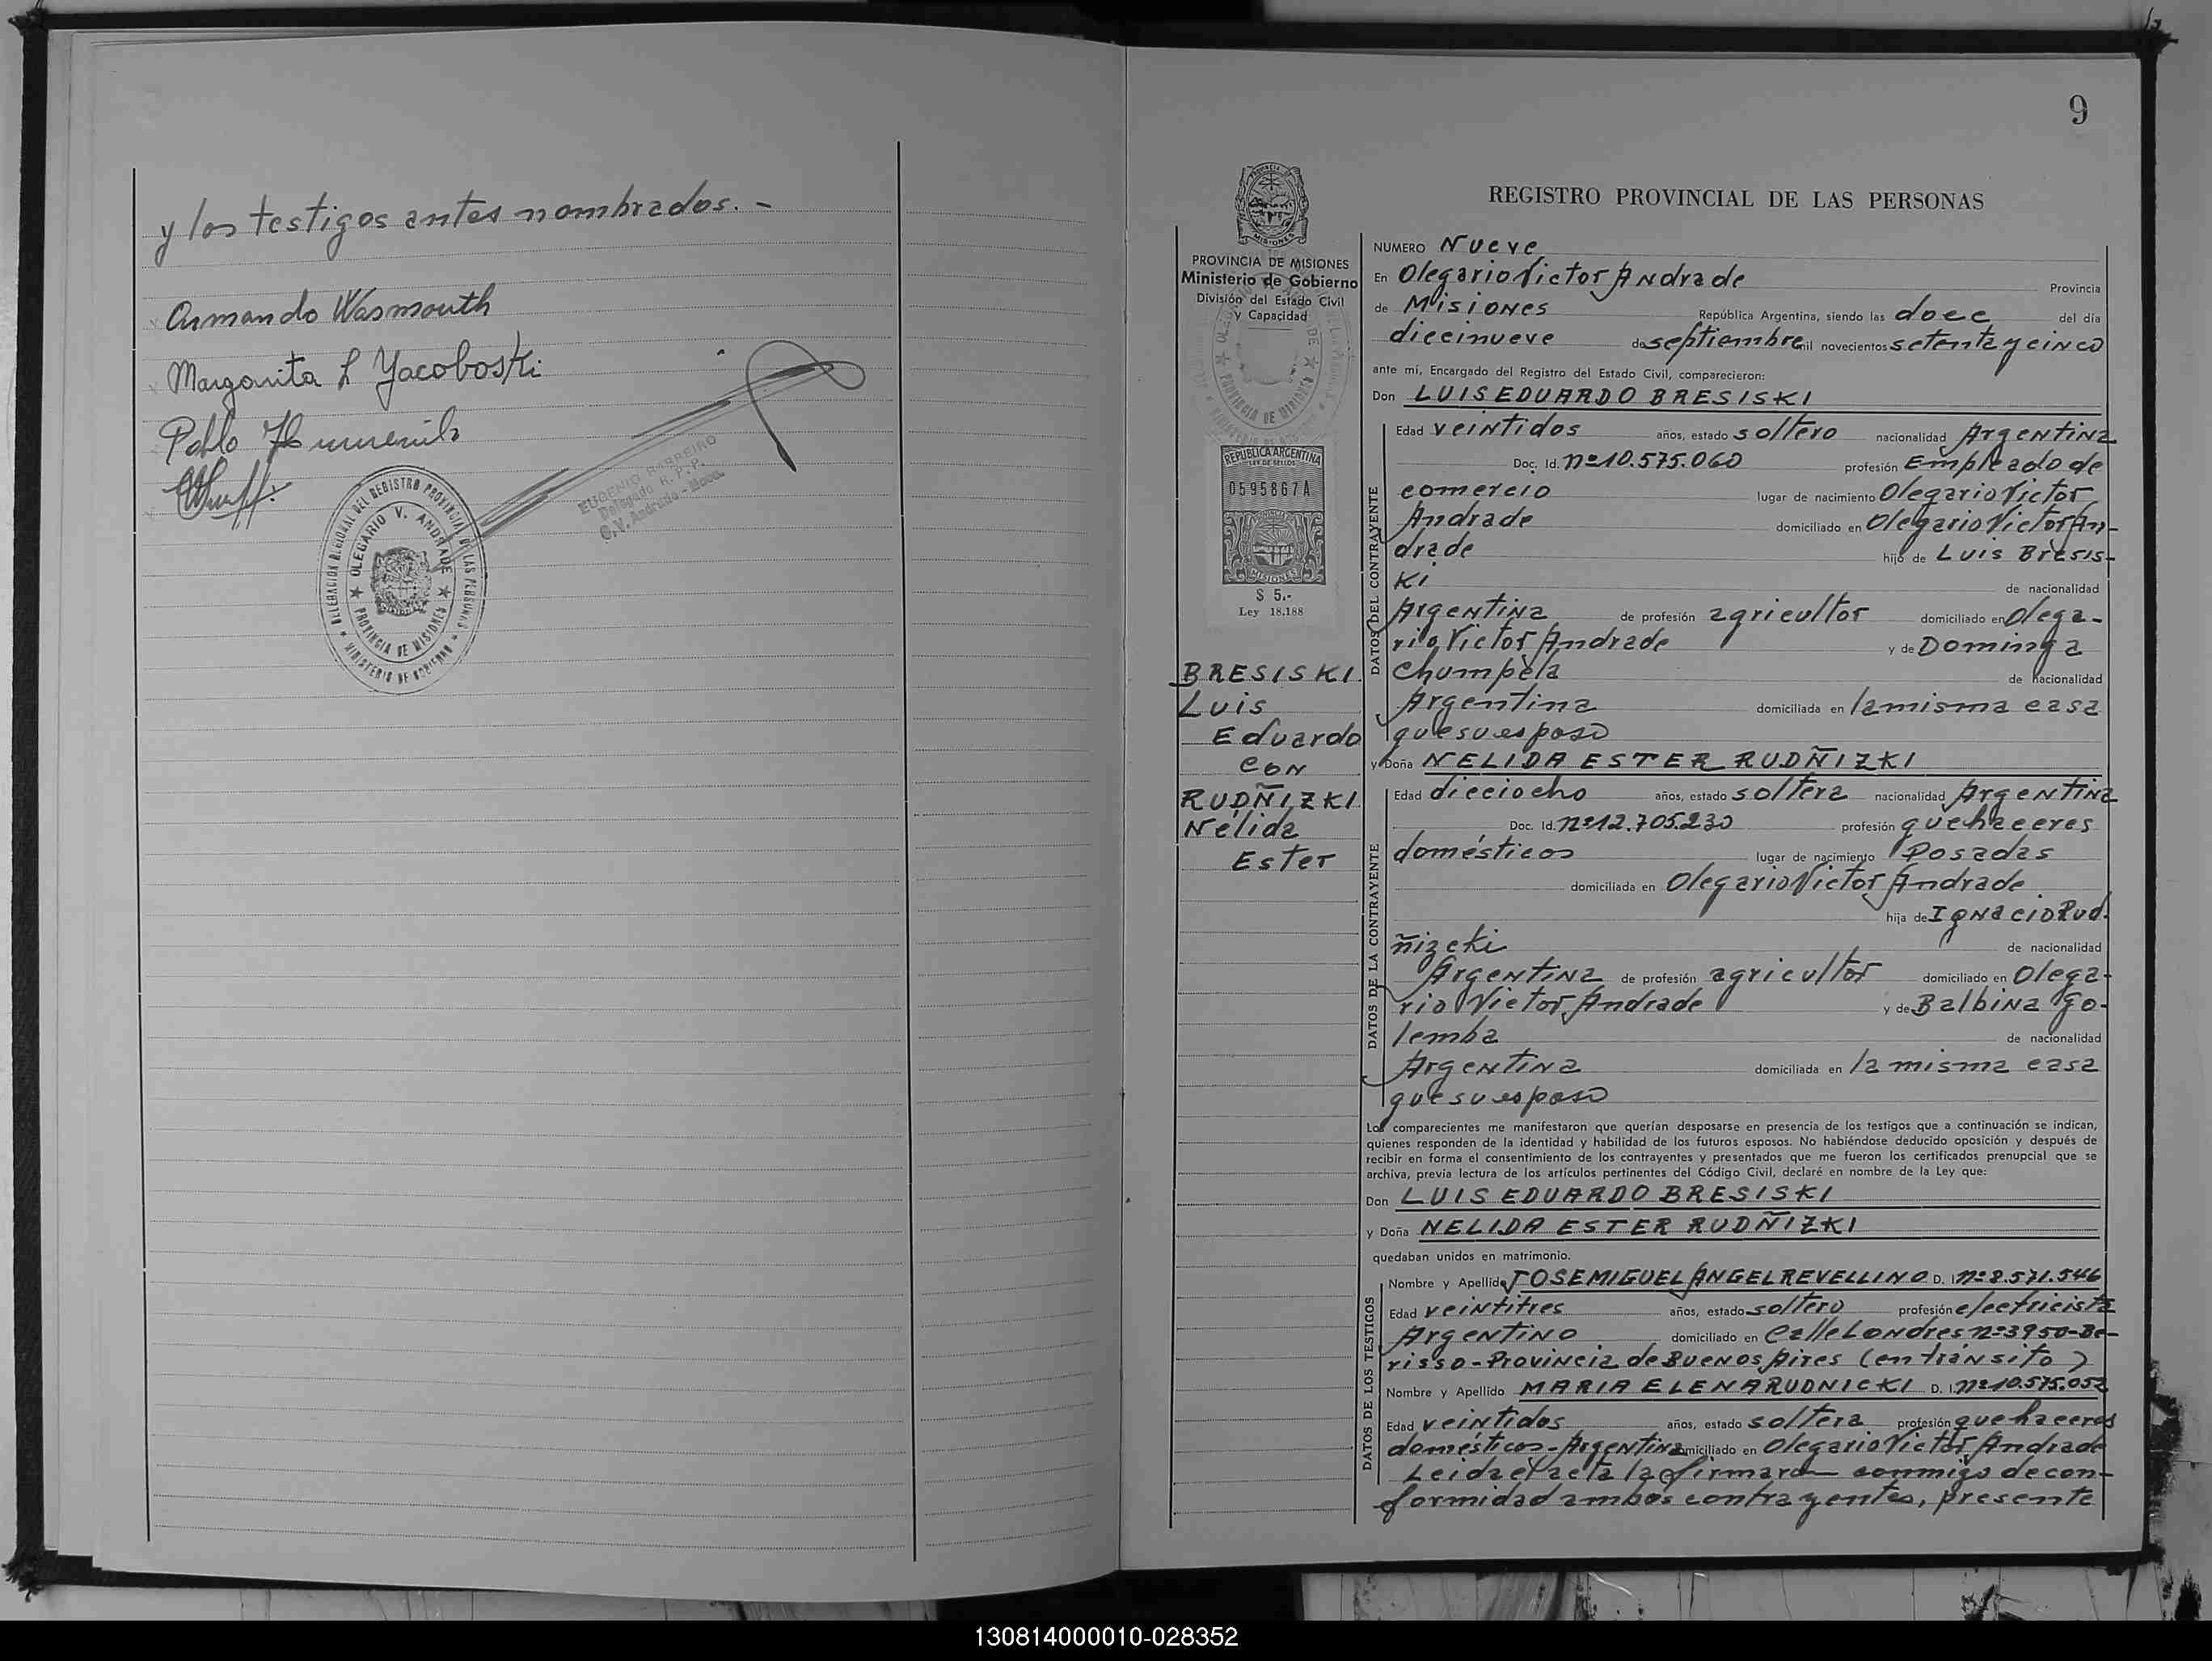 y los testigos antes nombrados. -
Armando Wasmouth
Margarita L Yacoboski
Pablo
DELEGACIÓN REGIONAL DEL REGISTRO PROVINCIAL DE LAS PERSONAS
OLEGARIO V. ANDRADE
PROVINCIA DE MISIONES
MINISTERIO DE GOBIERNO
EUGENIO BARREIRO
Delegado R. P. P.
O. V. Andrade - Mnes.
9
REGISTRO PROVINCIAL DE LAS PERSONAS
PROVINCIA DE MISIONES
Ministerio de Gobierno
División del Estado Civil
y Capacidad
REPUBLICA ARGENTINA
LEY DE SELLOS
0595867A
MISIONES
$ 5.-
Ley 18.188
BRESISKI
Luis
Eduardo
con
RUDÑIZKI
Nélida
Ester
NUMERO Nueve
En Olegario Victor Andrade Provincia
de Misiones República Argentina, siendo las doce del día
diecinueve de septiembre mil novecientos setenta y cinco
ante mí, Encargado del Registro del Estado Civil, comparecieron:
Don LUIS EDUARDO BRESISKI
DATOS DEL CONTRAYENTE
Edad veintidos años, estado soltero nacionalidad Argentina
Doc. Id. nº 10.575.060 profesión Empleado de
comercio lugar de nacimiento Olegario Victor
Andrade domiciliado en Olegario Victor An-
drade hijo de Luis Bresis-
ki de nacionalidad
Argentina de profesión agricultor domiciliado en Olega-
rio Victor Andrade y de Dominga
Chumpela de nacionalidad
Argentina domiciliada en la misma casa
que su esposo
y Doña NELIDA ESTER RUDÑIZKI
DATOS DE LA CONTRAYENTE
Edad dieciocho años, estado soltera nacionalidad Argentina
Doc. Id. nº 12.705.230 profesión quehaceres
domésticos lugar de nacimiento Posadas
domiciliada en Olegario Victor Andrade
hija de Ignacio Rud-
ñizcki de nacionalidad
Argentina de profesión agricultor domiciliado en Olega-
rio Victor Andrade y de Balbina Go-
lemba de nacionalidad
Argentina domiciliada en la misma casa
que su esposo
Los comparecientes me manifestaron que querían desposarse en presencia de los testigos que a continuación se indican,
quienes responden de la identidad y habilidad de los futuros esposos. No habiéndose deducido oposición y después de
recibir en forma el consentimiento de los contrayentes y presentados que me fueron los certificados prenupcial que se
archiva, previa lectura de los artículos pertinentes del Código Civil, declaré en nombre de la Ley que:
Don LUIS EDUARDO BRESISKI
y Doña NELIDA ESTER RUDÑIZKI
quedaban unidos en matrimonio.
DATOS DE LOS TESTIGOS
Nombre y Apellido JOSE MIGUEL ANGEL REVELLINO D. I. nº 8.571.546
Edad veintitres años, estado soltero profesión electricista
Argentino domiciliado en Calle Londres nº 3950-Be-
risso-Provincia de Buenos Aires (en tránsito)
Nombre y Apellido MARIA ELENA RUDNICKI D. I. nº 10.575.052
Edad veintidos años, estado soltera profesión quehaceres
domésticos-Argentina domiciliado en Olegario Victor Andrade
Leida el acta la firmaron conmigo de con-
formidad ambos contrayentes, presente
130814000010-028352